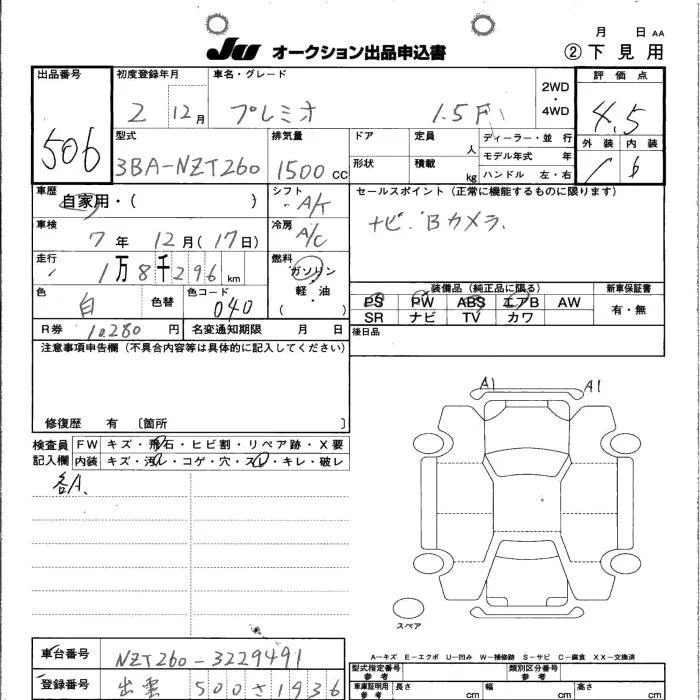 月 日 AA
JU オークション出品申込書 ② 下見用
出品番号 初度登録年月 車名・グレード 2WD・4WD 評価点
506 2 12月 プレミオ 1.5F 4.5
型式 排気量 ドア 定員 人 ディーラー・並行 外装 内装
3BA-NZT260 1500 CC 形状 積載 kg モデル年式 年 ハンドル 左・右 6
車歴 シフト セールスポイント (正常に機能するものに限ります)
自家用・( ) A/T ナビ. Bカメラ.
車検 冷房
7年 12月(17日) A/C
走行 燃料
1万8千296 km ガソリン・軽・油 ( )
装備品 (純正品に限る) 新車保証書
色 白 色替 色コード 040 PS PW ABS エアB AW 有・無
SR ナビ TV カワ
R券 10,280 円 名変通知期限 月 日 後日品
注意事項申告欄 (不具合内容等は具体的に記入してください)
修復歴 有 〔箇所 〕
A1 A1
検査員記入欄 FW キズ・飛石・ヒビ割・リペア跡・X要
内装 キズ・汚レ・コゲ・穴・スレ・キレ・破レ
各A.
スペア
A-キズ E-エクボ U-凹み W-補修跡 S-サビ C-腐食 XX-交換済
車台番号 NZT260-3229491
型式指定番号 参考 類別区分番号 参考
登録番号 出雲 500 さ 1936
車庫証明用 参考 長さ cm 幅 cm 高さ cm